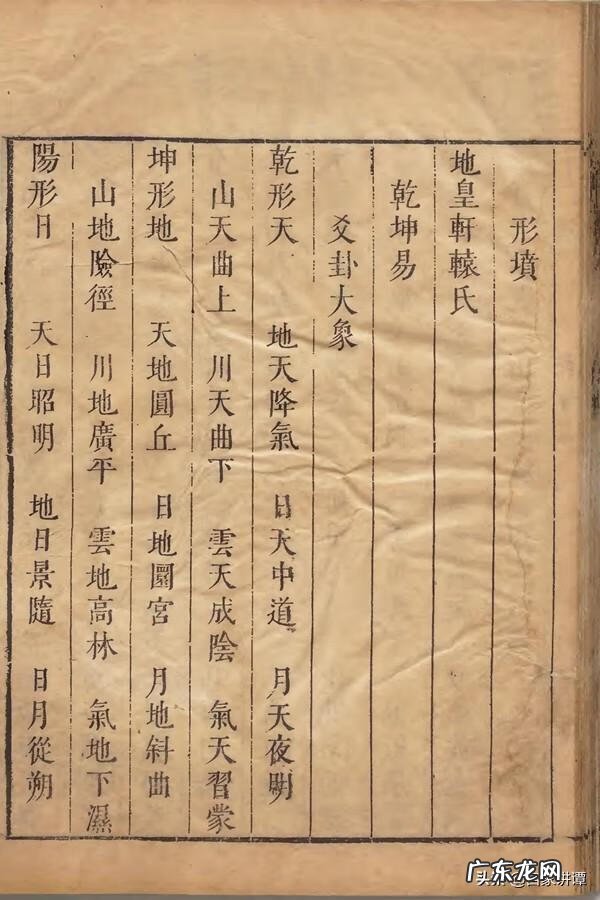 形墳
地皇軒轅氏
乾坤易
爻卦大象
乾形天 地天降氣 日天中道 月天夜明
山天曲上 川天曲下 雲天成陰 氣天習蒙
坤形地 天地圓丘 日地圜宮 月地斜曲
山地險徑 川地廣平 雲地高林 氣地下濕
陽形日 天日昭明 地日景隨 日月從朔
广东龙网